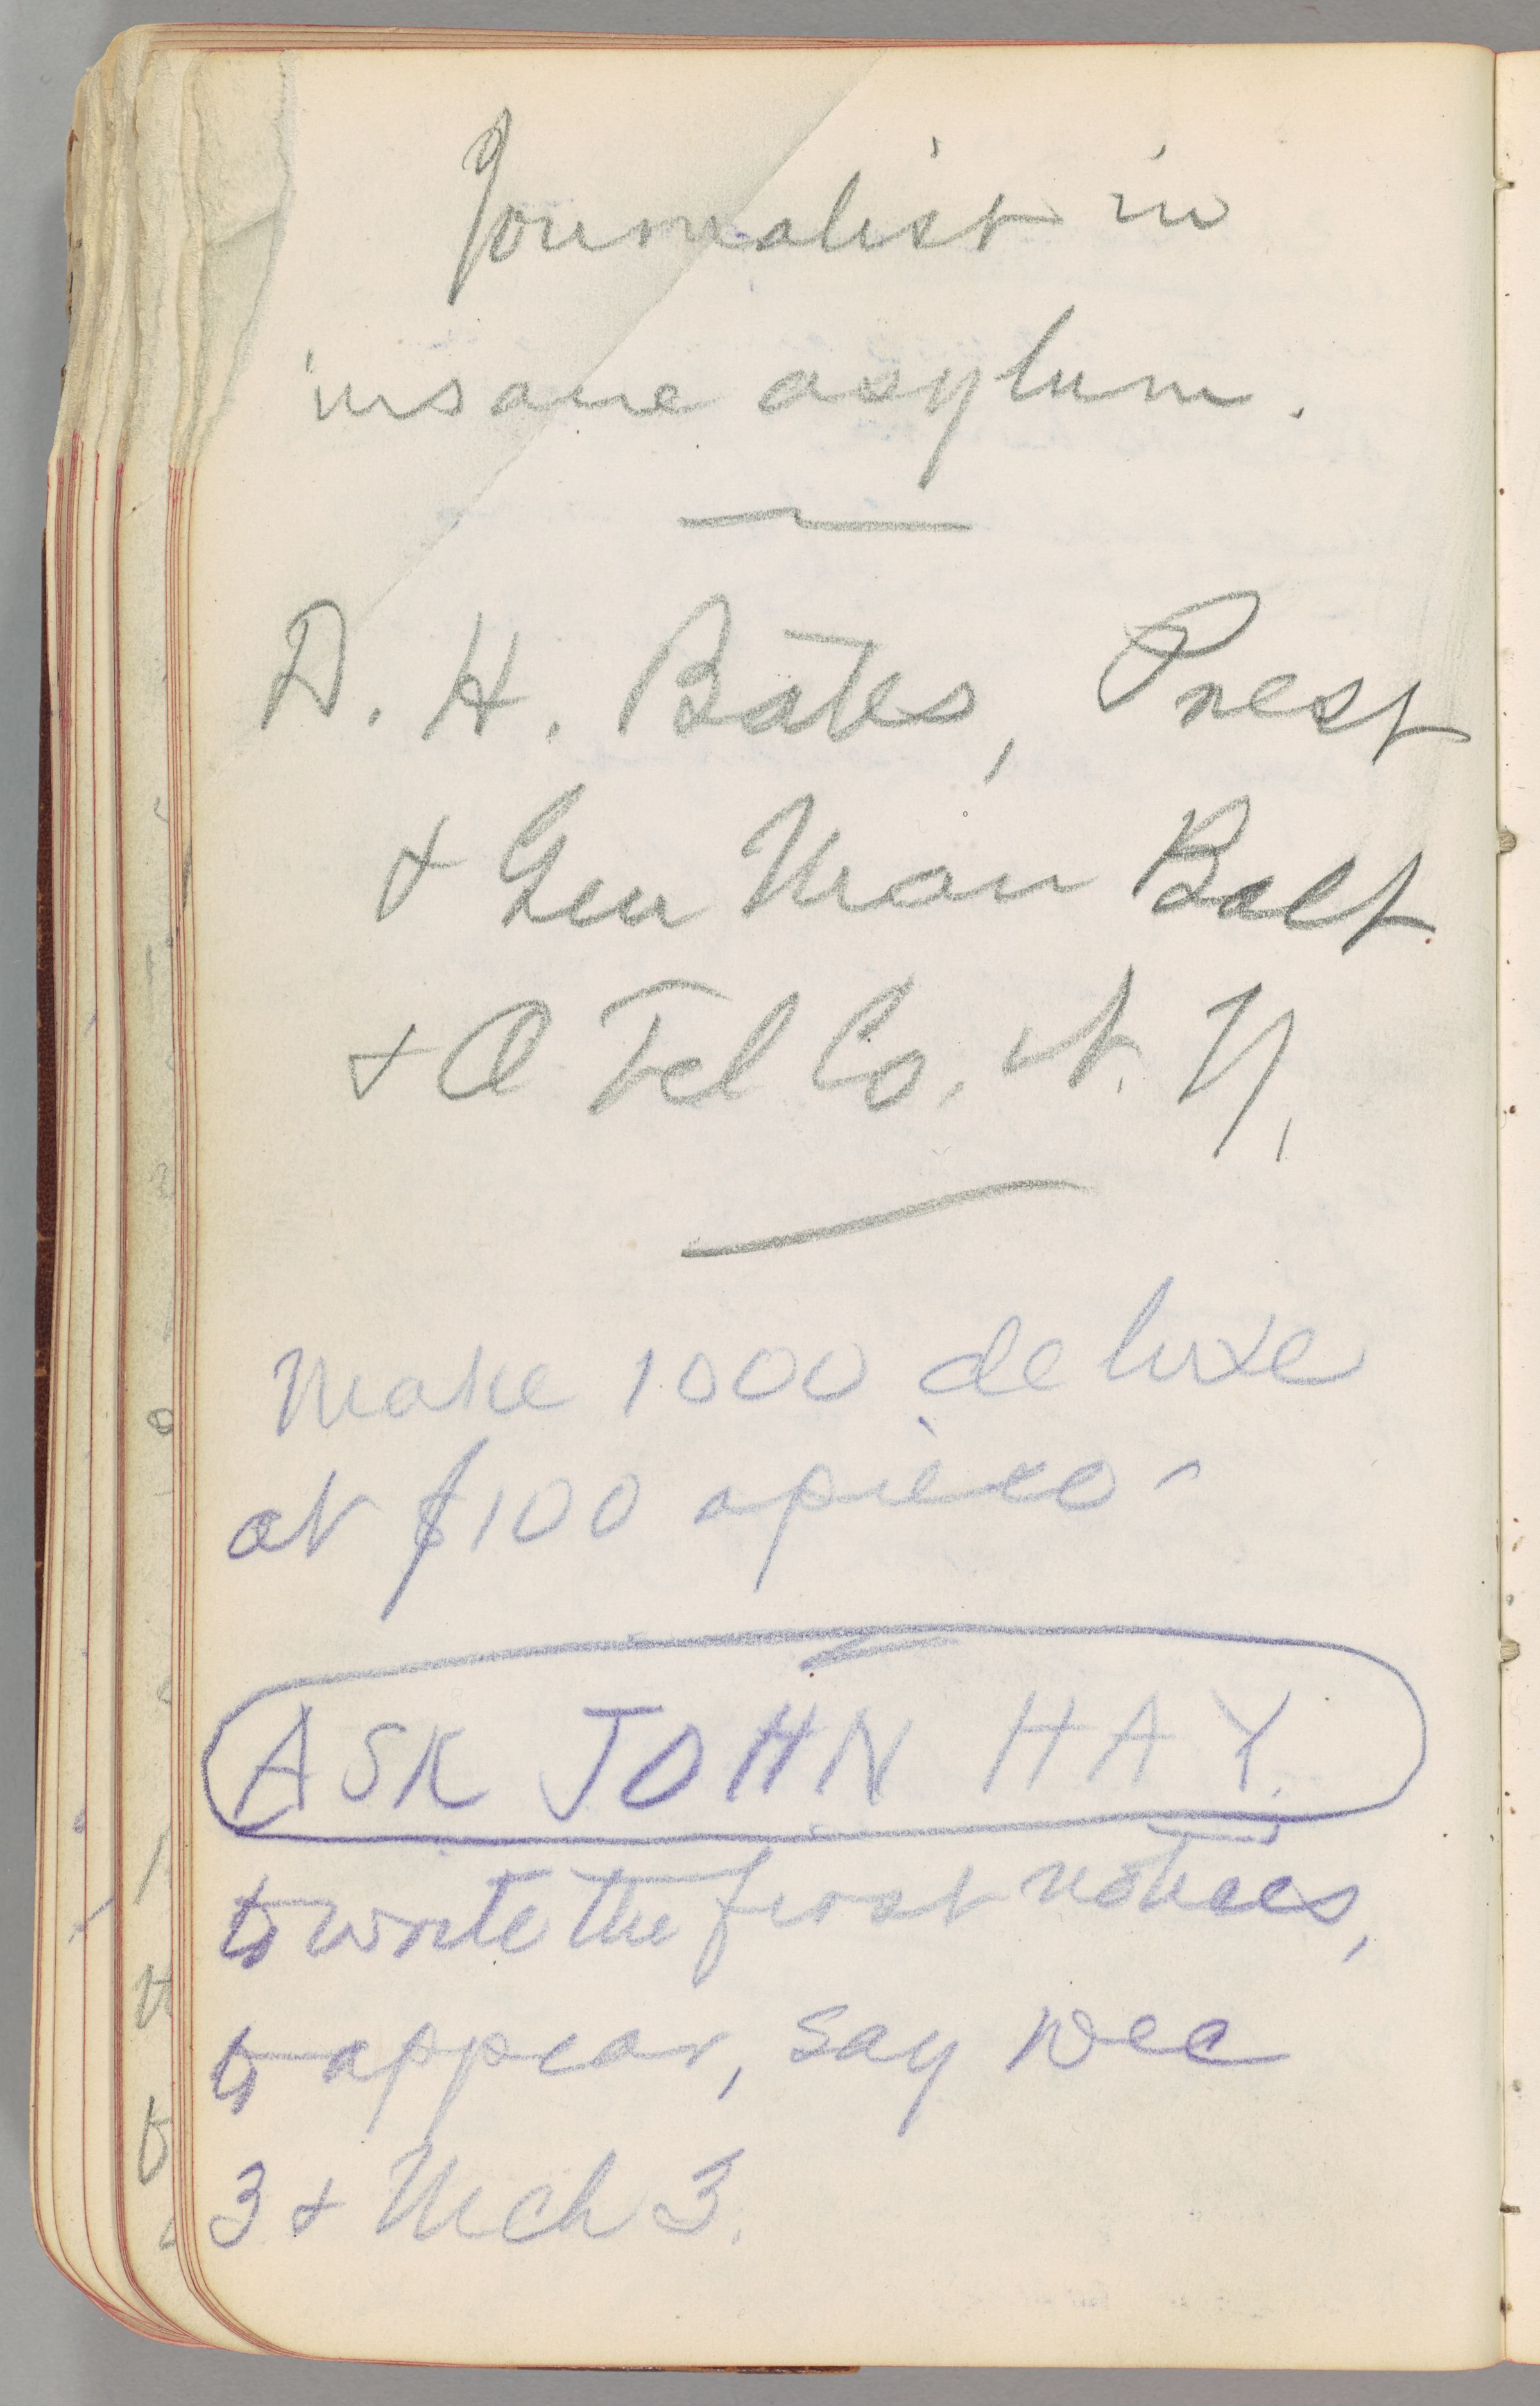 Journalist in
insane asylum.
D. H. Bates, Prest
& Gen Man Balt
& O Tel Co. N. Y.
Make 1000 de luxe
at $100 apiece-
ASK JOHN HAY
to write the first notices,
to appear, say Dec
3 & Mch 3.